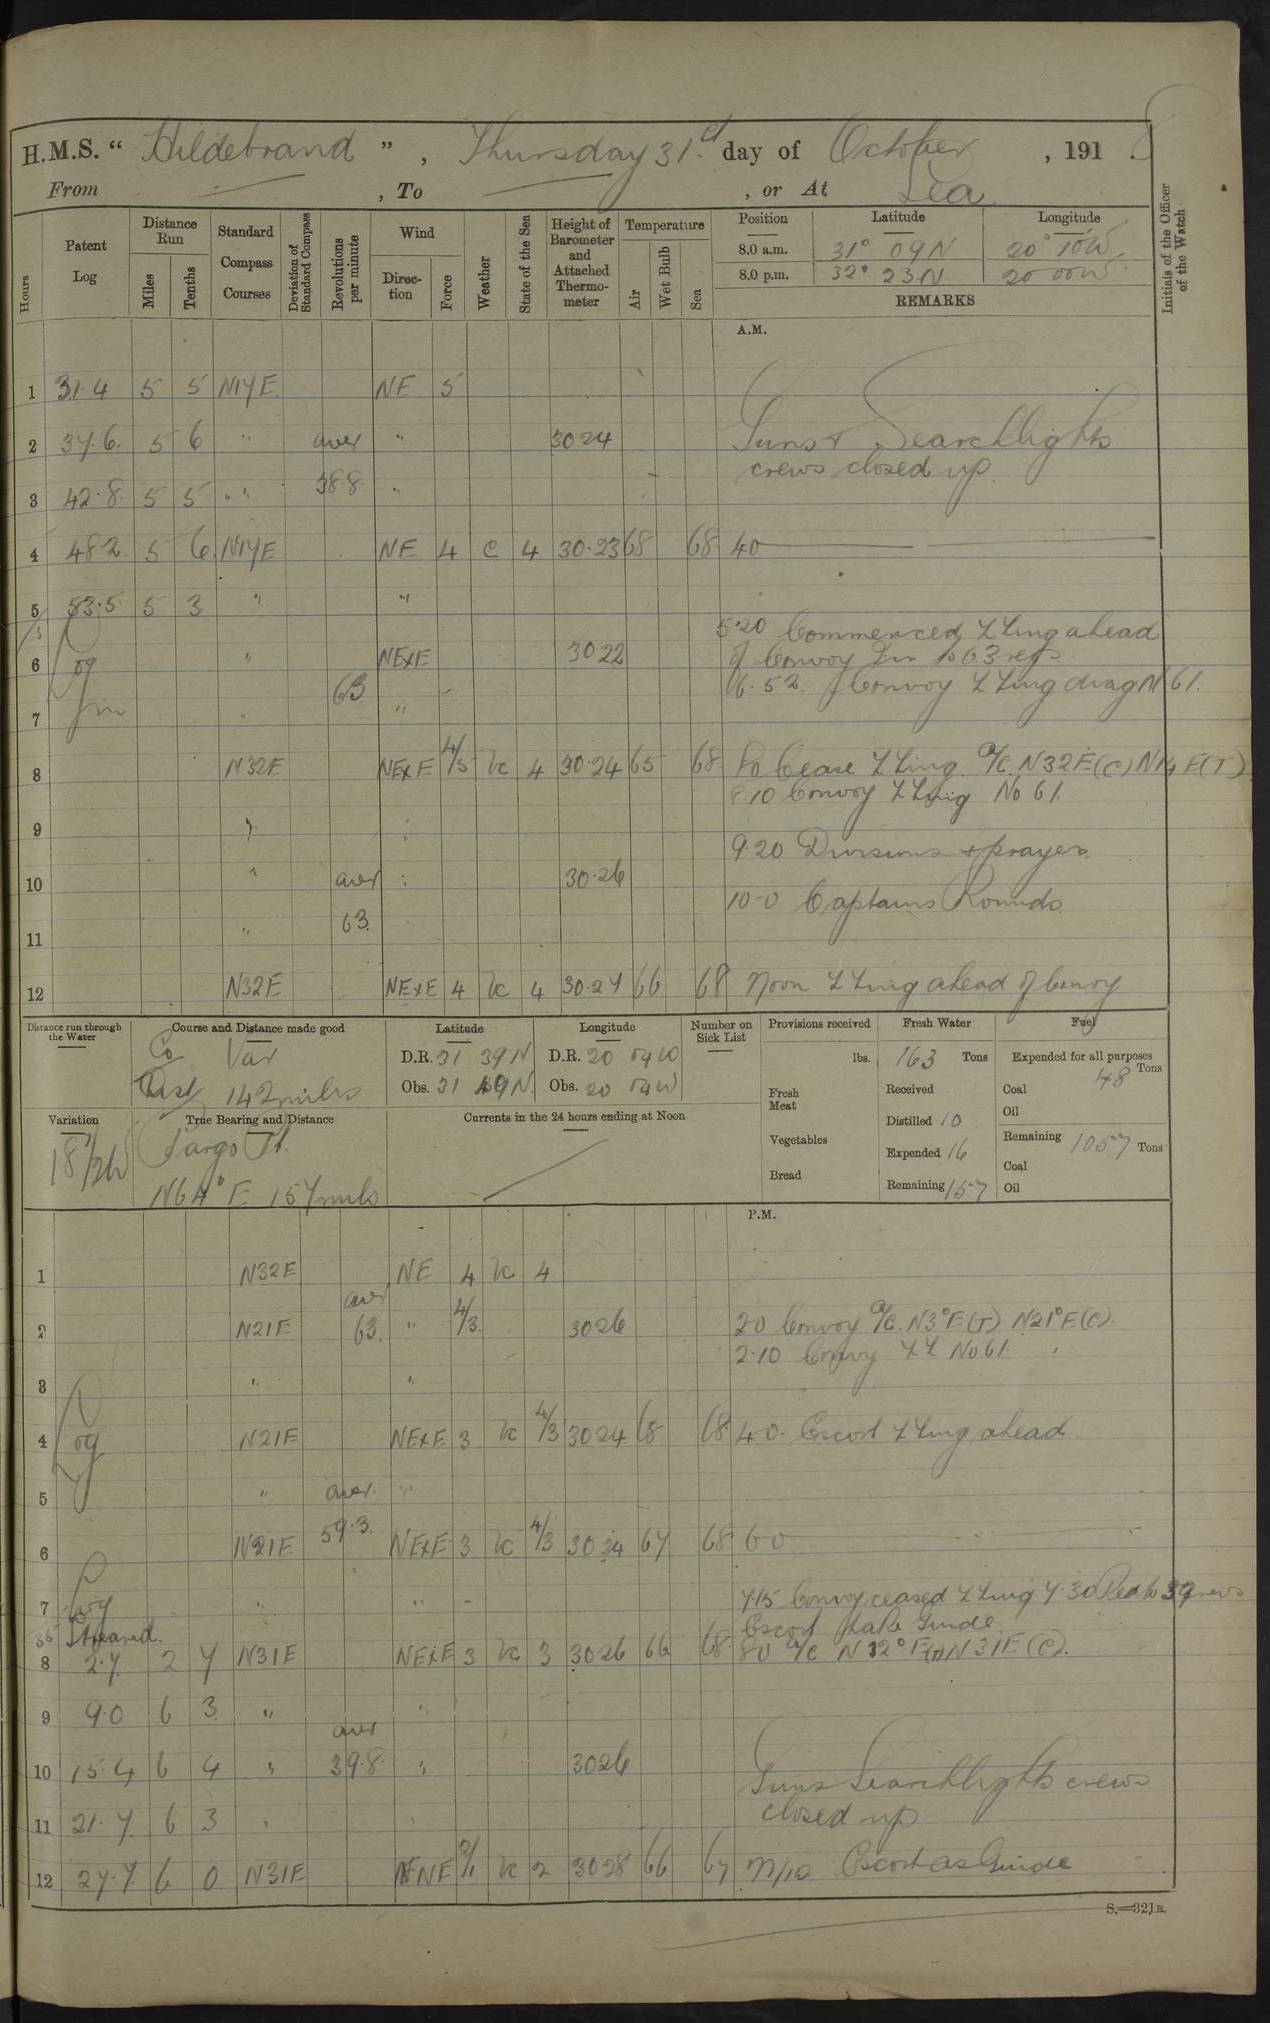 H.M.S. “ Hildebrand ” , Thursday 31st day of October , 191 8
From — , To — , or At Sea
Hours
Patent Log
Distance Run
Miles
Tenths
Standard Compass Courses
Deviation of Standard Compass
Revolutions per minute
Wind
Direction
Force
Weather
State of the Sea
Height of Barometer and Attached Thermometer
Temperature
Air
Wet Bulb
Sea
Position Latitude Longitude
8.0 a.m. 31° 09 N 20° 10 W
8.0 p.m. 32° 23 N 20 00 W
REMARKS
Initials of the Officer of the Watch
A.M.
1 31.4 5 5 N17E NE 5
2 37.6. 5 6 " aver " 30 24 Guns & Searchlights
crews closed up
3 42.8. 5 5 " " 38 8 "
4 48 2 5 6 N17E NE 4 C 4 30.23 68 68 4 0
5 53.5 5 3 " "
5.20 Commenced Z Zing ahead
6 Log " NExE 30 22 of Convoy Inc to 63 revs
63 6.52. Convoy Z Zing diag No 61.
7 "
8 N32E NExE 4/5 bc 4 30.24 65 68 8.0 Cease Z Zing. A/C. N32E (C) N14E (T)
8.10 Convoy Z Zing No 61.
9 " :
9.20 Divisions & prayers
10 " aver : 30.26
10.0 Captains Rounds
11 " 63.
12 N32E NExE 4 bc 4 30.27 66 68 Noon Z Zing ahead of Convoy
Distance run through the Water
Course and Distance made good
Co Var
Dist 142 miles
Latitude
D.R. 31 39 N
Obs. 31 49 N.
Longitude
D.R. 20 09 W
Obs. 20 09 W
Number on Sick List
Provisions received
lbs.
Fresh Meat
Vegetables
Bread
Fresh Water
163 Tons
Received
Distilled 10
Expended 16
Remaining 157
Fuel
Expended for all purposes
48 Tons
Coal
Oil
Remaining 1057 Tons
Coal
Oil
Variation
18 1/2 W
True Bearing and Distance
Fargo Pt.
N64°E 157 miles
Currents in the 24 hours ending at Noon
P.M.
1 N32E NE 4 bc 4
aver
2 N21E 63. " 4/3. 3026 2.0 Convoy A/C. N3°E (T) N21°E (C).
2.10 Convoy ZZ No 61.
3 " "
4 Log N21E NExE 3 bc 4/3 3024 68 68 4.0. Escort Z Zing ahead
5 " aver. "
6 N21E 59.3. NExE 3 bc 4/3 3024 67 68 6 0
7 Log " " 7.15 Convoy ceased Z Zing 7.30 Red to 39 revs
Streamed. Escort take Guide.
8 2.7 2 7 N31E NExE 3 bc 3 3026 66 68 8.0 A/C N 12° E (T) N31E (C).
9 9.0 6 3 " "
aver
10 15.4 6 4 " 39.8. " 3026 Guns Searchlights crews
closed up
11 21.7. 6 3 " "
12 27.7 6 0 N31E NE 2/1 bc 2 3028 66 67 M/N Escort as Guide
S.—321B.